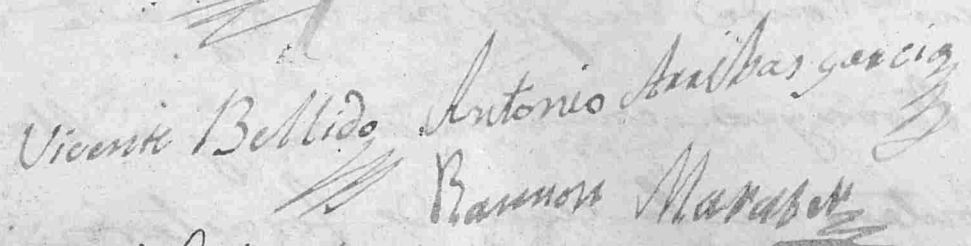 Vicente Bellido Antonio Arribas garcia
Ramon